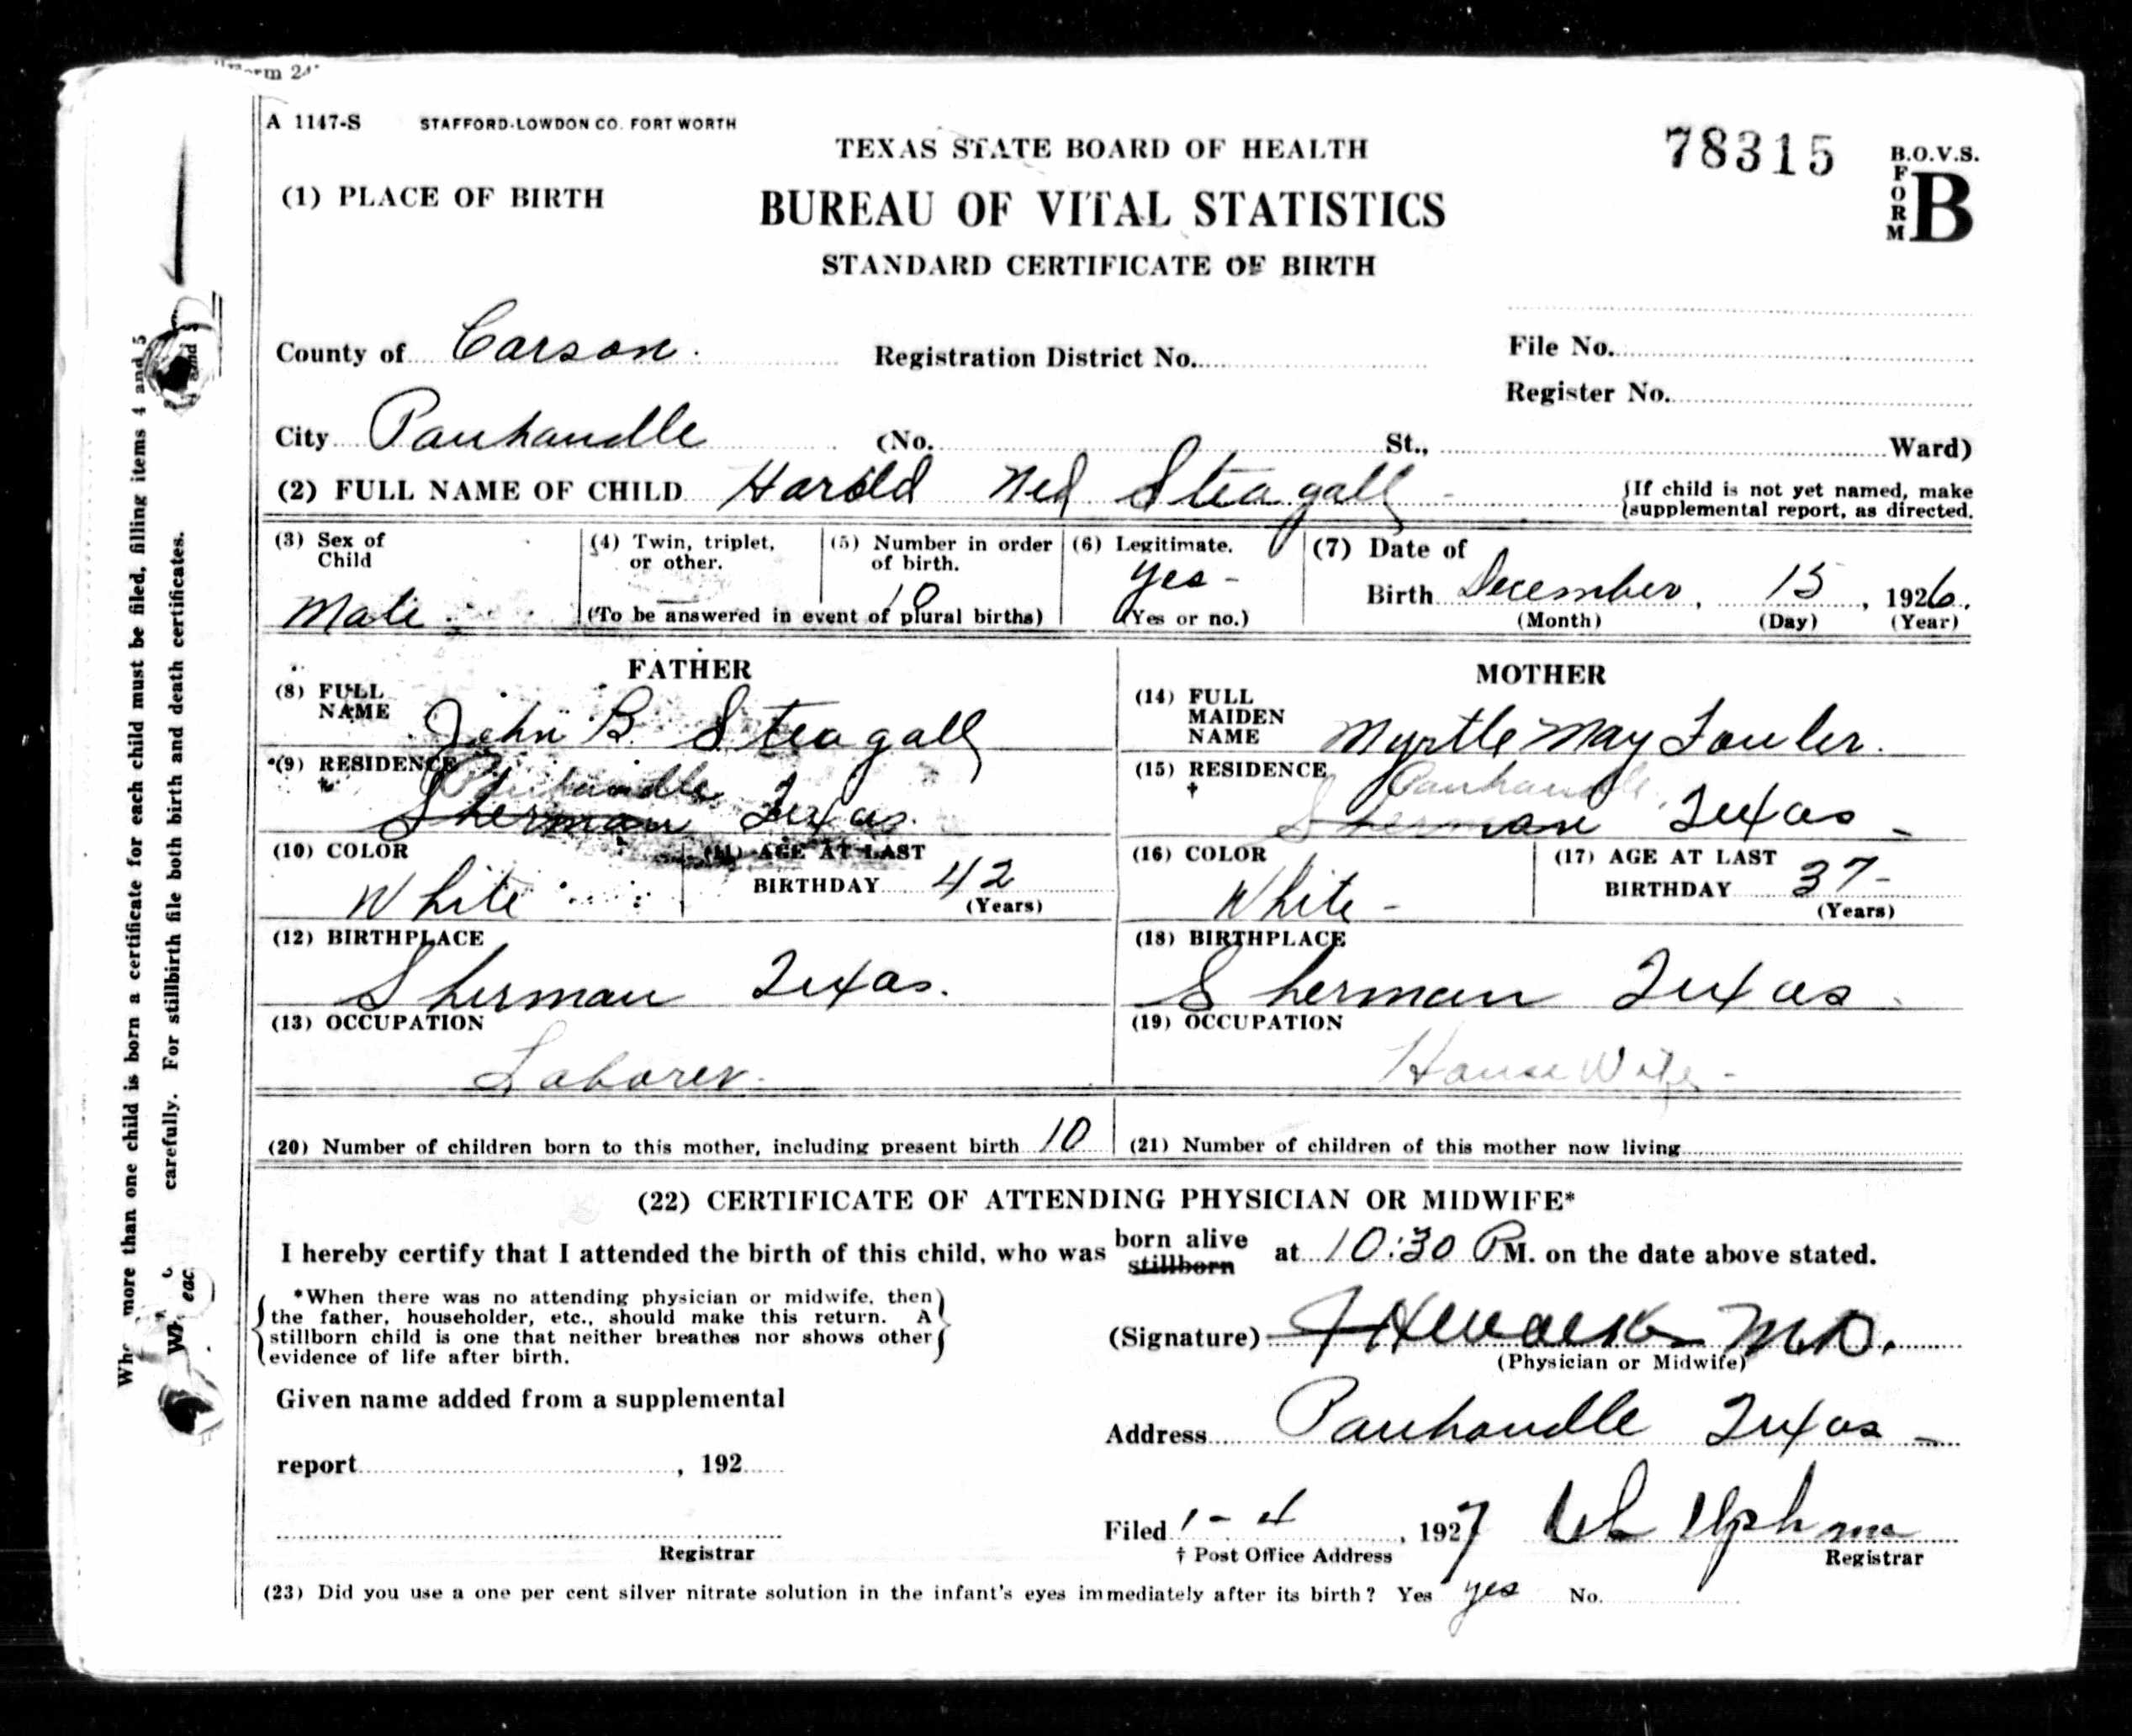 A 1147-S STAFFORD-LOWDON CO. FORT WORTH
TEXAS STATE BOARD OF HEALTH
78315
B.O.V.S.
FORM B
(1) PLACE OF BIRTH
BUREAU OF VITAL STATISTICS
STANDARD CERTIFICATE OF BIRTH
County of Carson. Registration District No. File No.
Register No.
City Panhandle (No. St., Ward)
(2) FULL NAME OF CHILD Harold Ned Steagall (If child is not yet named, make
supplemental report, as directed.
(3) Sex of Child Male
(4) Twin, triplet, or other.
(5) Number in order of birth. 10
(To be answered in event of plural births)
(6) Legitimate. yes -
(Yes or no.)
(7) Date of
Birth December, 15, 1926.
(Month) (Day) (Year)
FATHER
(8) FULL NAME John B. Steagall
(9) RESIDENCE Panhandle
† Sherman Texas.
(10) COLOR White
(11) AGE AT LAST BIRTHDAY 42
(Years)
(12) BIRTHPLACE
Sherman Texas.
(13) OCCUPATION
Laborer.
MOTHER
(14) FULL MAIDEN NAME Myrtle May Fowler.
(15) RESIDENCE Panhandle
† Sherman Texas -
(16) COLOR White -
(17) AGE AT LAST BIRTHDAY 37 -
(Years)
(18) BIRTHPLACE
Sherman Texas.
(19) OCCUPATION
House Wife -
(20) Number of children born to this mother, including present birth 10
(21) Number of children of this mother now living
(22) CERTIFICATE OF ATTENDING PHYSICIAN OR MIDWIFE*
I hereby certify that I attended the birth of this child, who was born alive stillborn at 10:30 P M. on the date above stated.
*When there was no attending physician or midwife, then
the father, householder, etc., should make this return. A
stillborn child is one that neither breathes nor shows other
evidence of life after birth.
(Signature) M.D.
(Physician or Midwife)
Given name added from a supplemental
report , 192
Registrar
Address Panhandle Texas -
Filed 1-4, 1927
† Post Office Address Registrar
(23) Did you use a one per cent silver nitrate solution in the infant's eyes immediately after its birth? Yes yes No.
more than one child is born a certificate for each child must be filed, filling items 4 and 5
carefully. For stillbirth file both birth and death certificates.